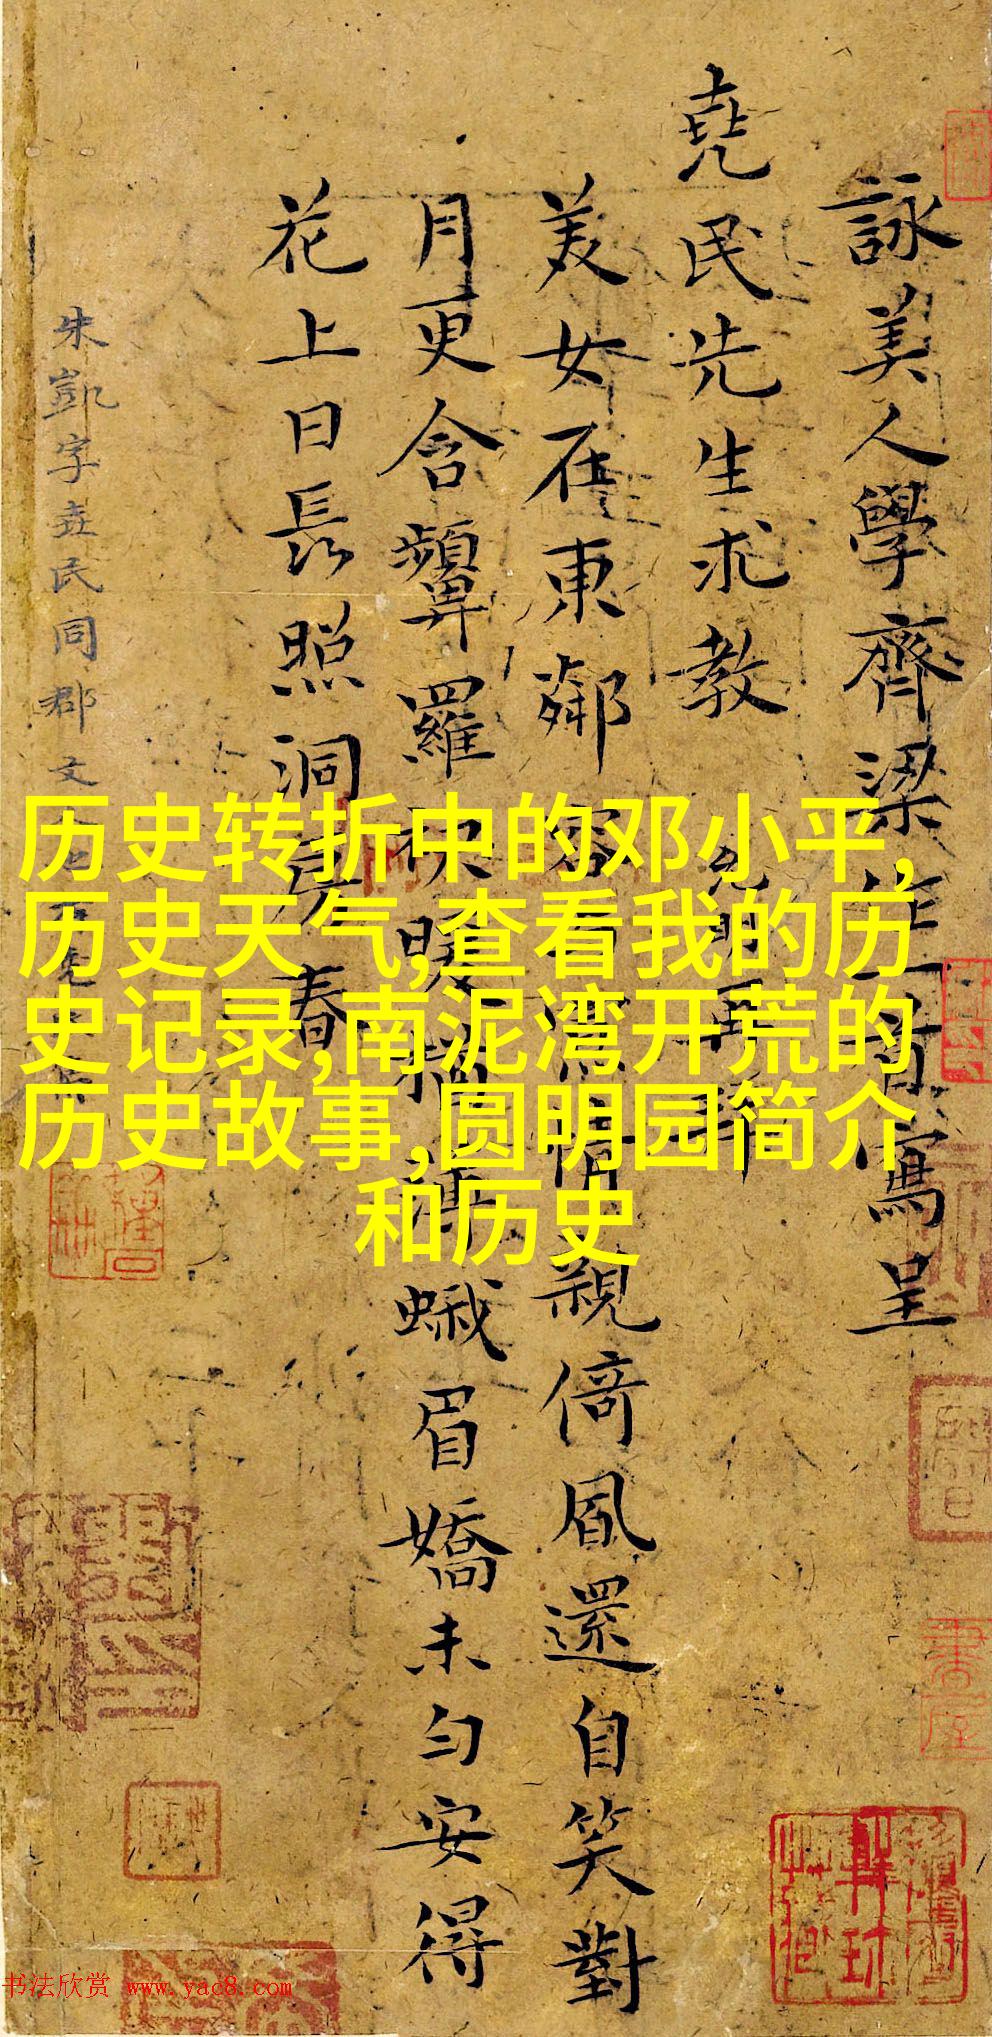 詠美人學齊梁作一首寫呈
堯民先生求教
美女在東鄰 倚風還自笑對
月更含顰羅 蛾眉嬌未勻安得
花上日長照洞房春
朱凱字堯民同郡文
历史转折中的邓小平,
历史天气,查看我的历
史记录,南泥湾开荒的
历史故事,圆明园简介
和历史
书法欣赏 www.yac8.com